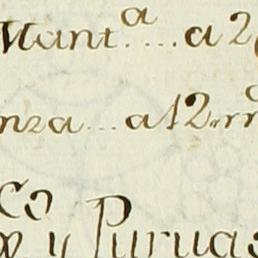 Mant.ª .... a 2
nza ... a 12 rr
co
y Puruas